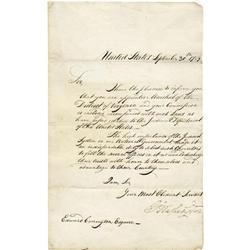 United States September 30th 1789
Sir,
I have the pleasure to inform
you that you are appointed Marshal of the
District of Virginia and your Commission
is enclosed, accompanied with such Laws as
have passed relative to the Judicial Department
of the United States.
The high importance of the Judicial
System in our National Government made it
an indispensable duty to select such Characters
to fill the several offices in it as would discharge
their trusts with honor to themselves and
advantage to their Country.
I am, Sir
Your Most Obedient Servant
G Washington
Edward Carrington Esquire